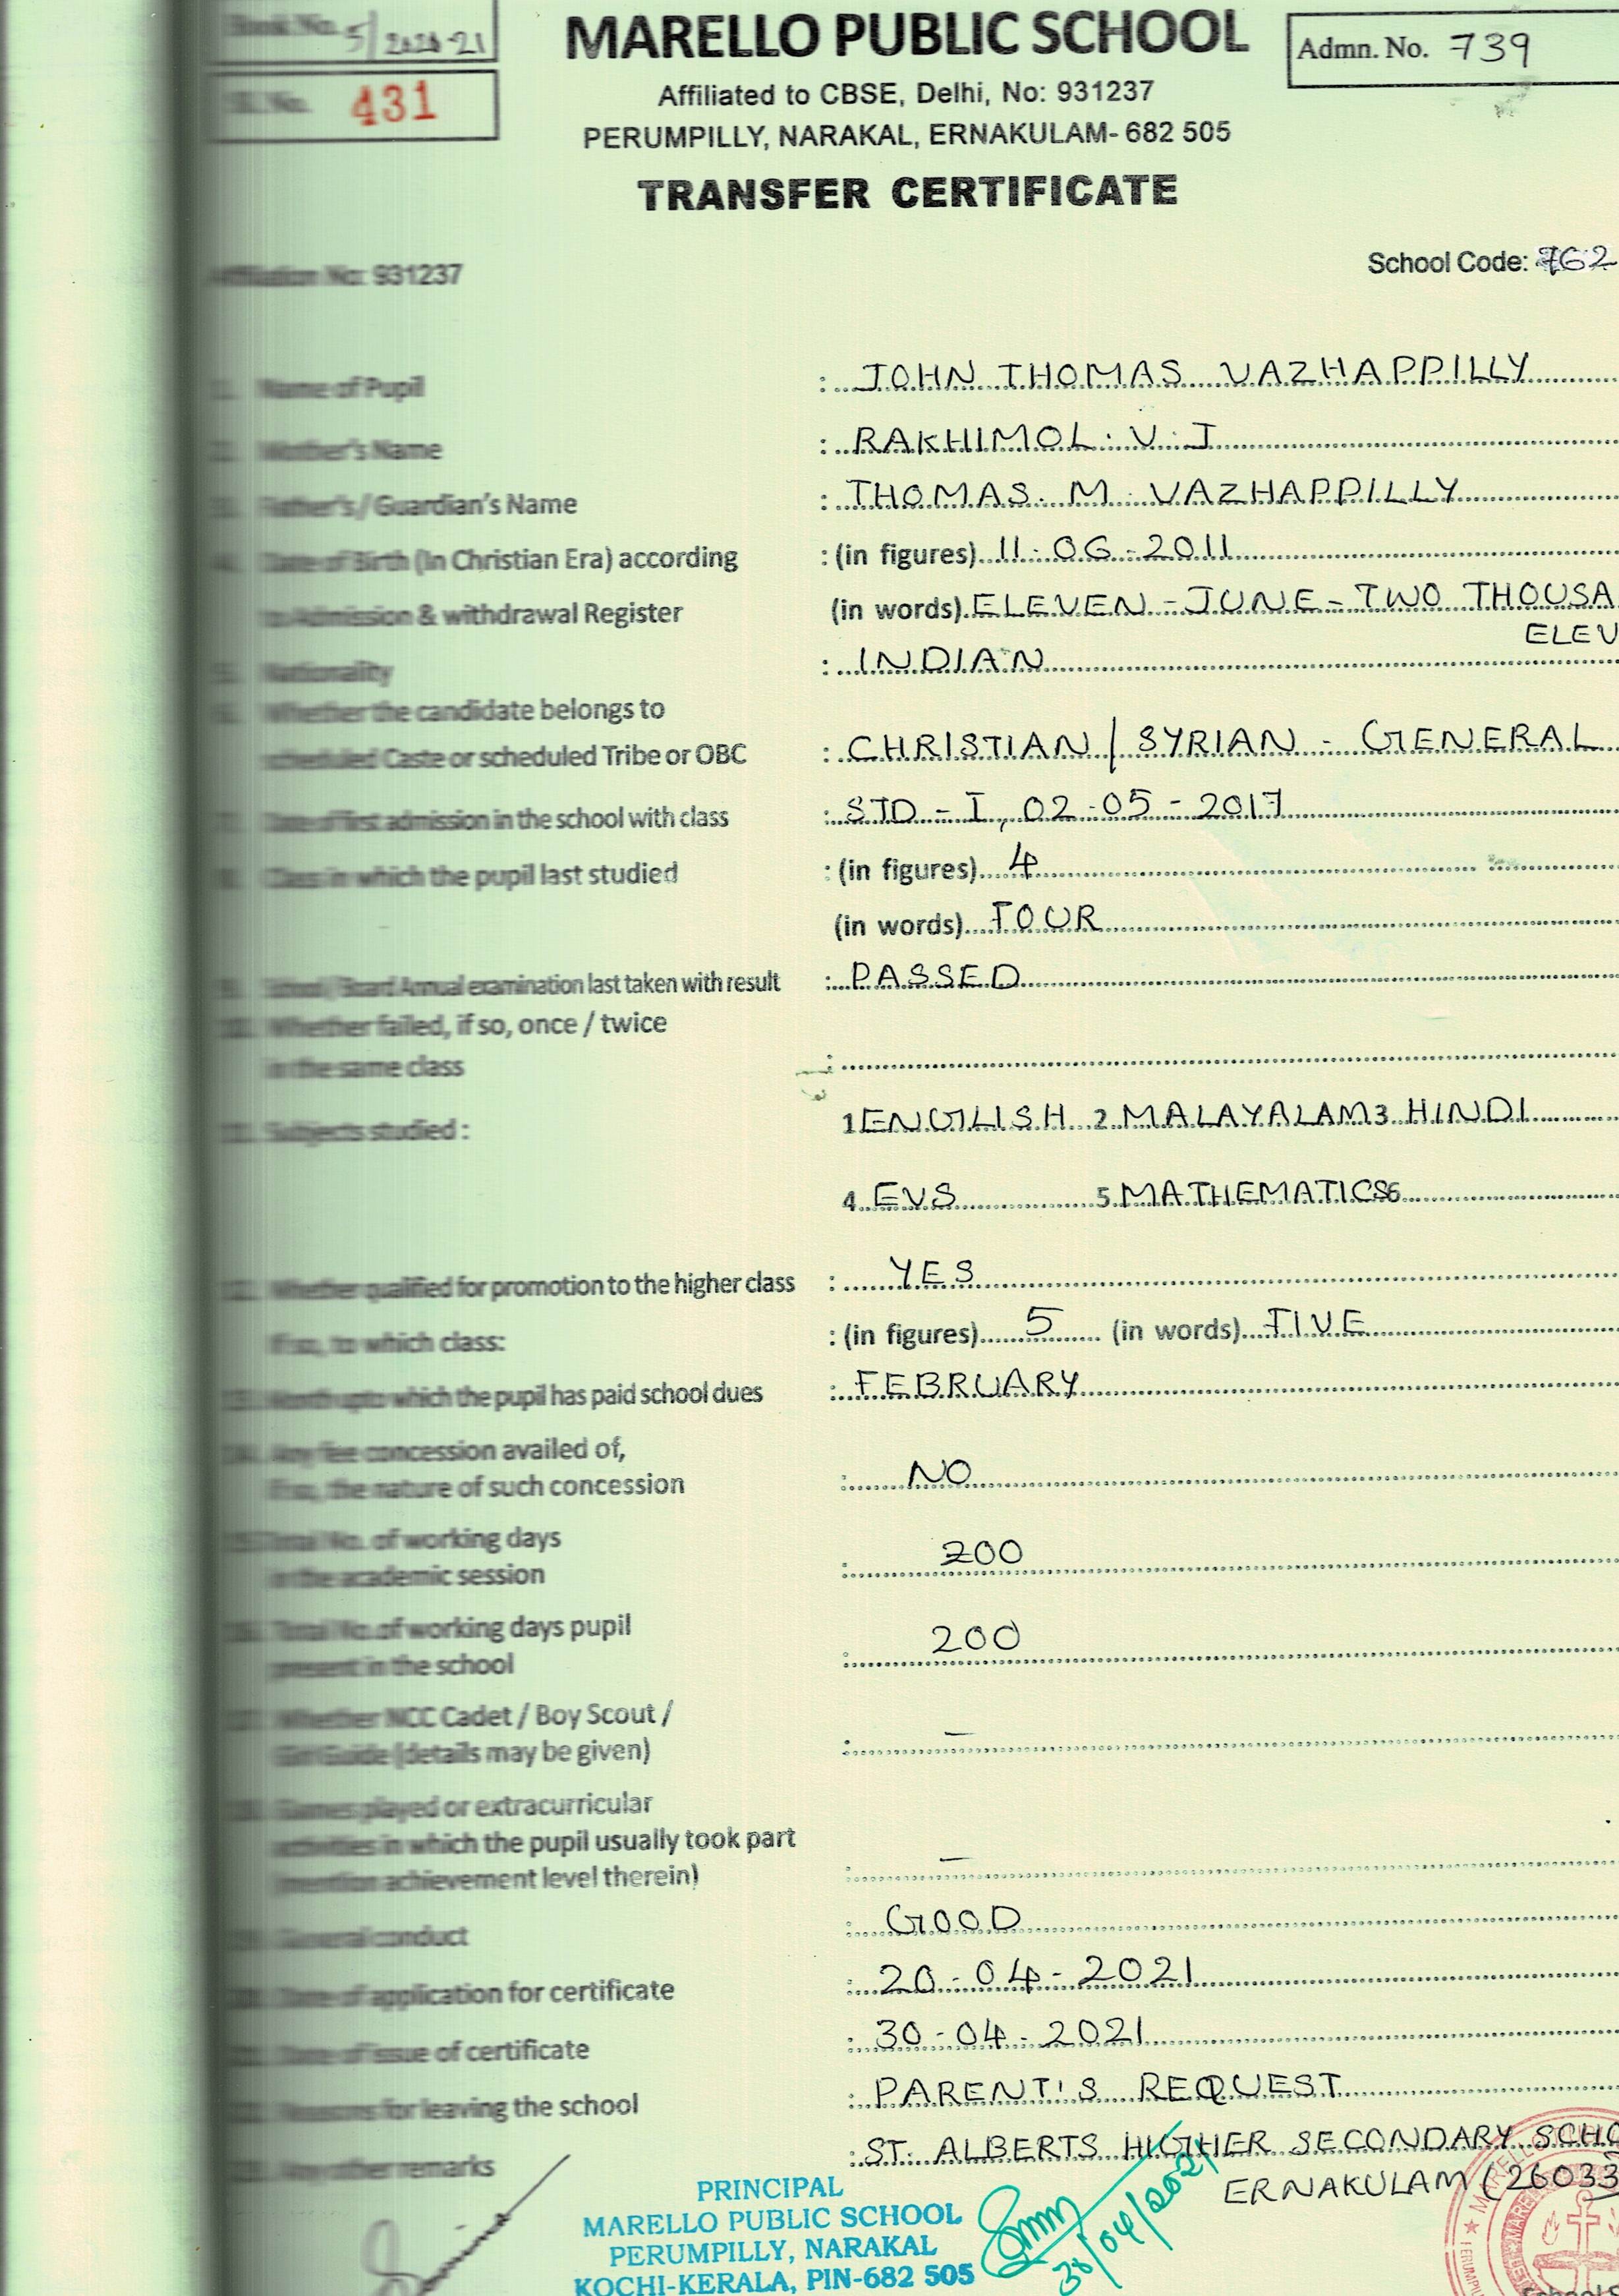 Book No. 5/2020-21
MARELLO PUBLIC SCHOOL
Admn. No. 739
Sl. No. 431
Affiliated to CBSE, Delhi, No: 931237
PERUMPILLY, NARAKAL, ERNAKULAM- 682 505
TRANSFER CERTIFICATE
Affiliation No: 931237
School Code: 762
Name of Pupil : JOHN THOMAS VAZHAPPILLY
Mother's Name : RAKHIMOL. V. J
Father's / Guardian's Name : THOMAS. M. VAZHAPPILLY
Date of Birth (In Christian Era) according : (in figures) 11-06-2011
to Admission & withdrawal Register (in words) ELEVEN - JUNE - TWO THOUSA
ELEV
Nationality : INDIAN
Whether the candidate belongs to
scheduled Caste or scheduled Tribe or OBC : CHRISTIAN / SYRIAN - GENERAL
Date of first admission in the school with class : STD - I, 02-05-2017
Class in which the pupil last studied : (in figures) 4
(in words) FOUR
School / Board Annual examination last taken with result : PASSED
Whether failed, if so, once / twice
in the same class :
Subjects studied : 1 ENGLISH 2 MALAYALAM 3 HINDI
4. EVS 5. MATHEMATICS 6
Whether qualified for promotion to the higher class : YES
If so, to which class: : (in figures) 5 (in words) FIVE
Month upto which the pupil has paid school dues : FEBRUARY
Any fee concession availed of,
if so, the nature of such concession : NO
Total No. of working days
in the academic session : 200
Total No. of working days pupil
present in the school : 200
Whether NCC Cadet / Boy Scout /
Girl Guide (details may be given) : –
Games played or extracurricular
activities in which the pupil usually took part
(mention achievement level therein) : –
General conduct : GOOD
Date of application for certificate : 20-04-2021
Date of issue of certificate : 30-04-2021
Reasons for leaving the school : PARENT'S REQUEST
Any other remarks : ST. ALBERTS HIGHER SECONDARY SCHO
ERNAKULAM (26033
PRINCIPAL
MARELLO PUBLIC SCHOOL
PERUMPILLY, NARAKAL
KOCHI-KERALA, PIN-682 505
30/04/2021
School S